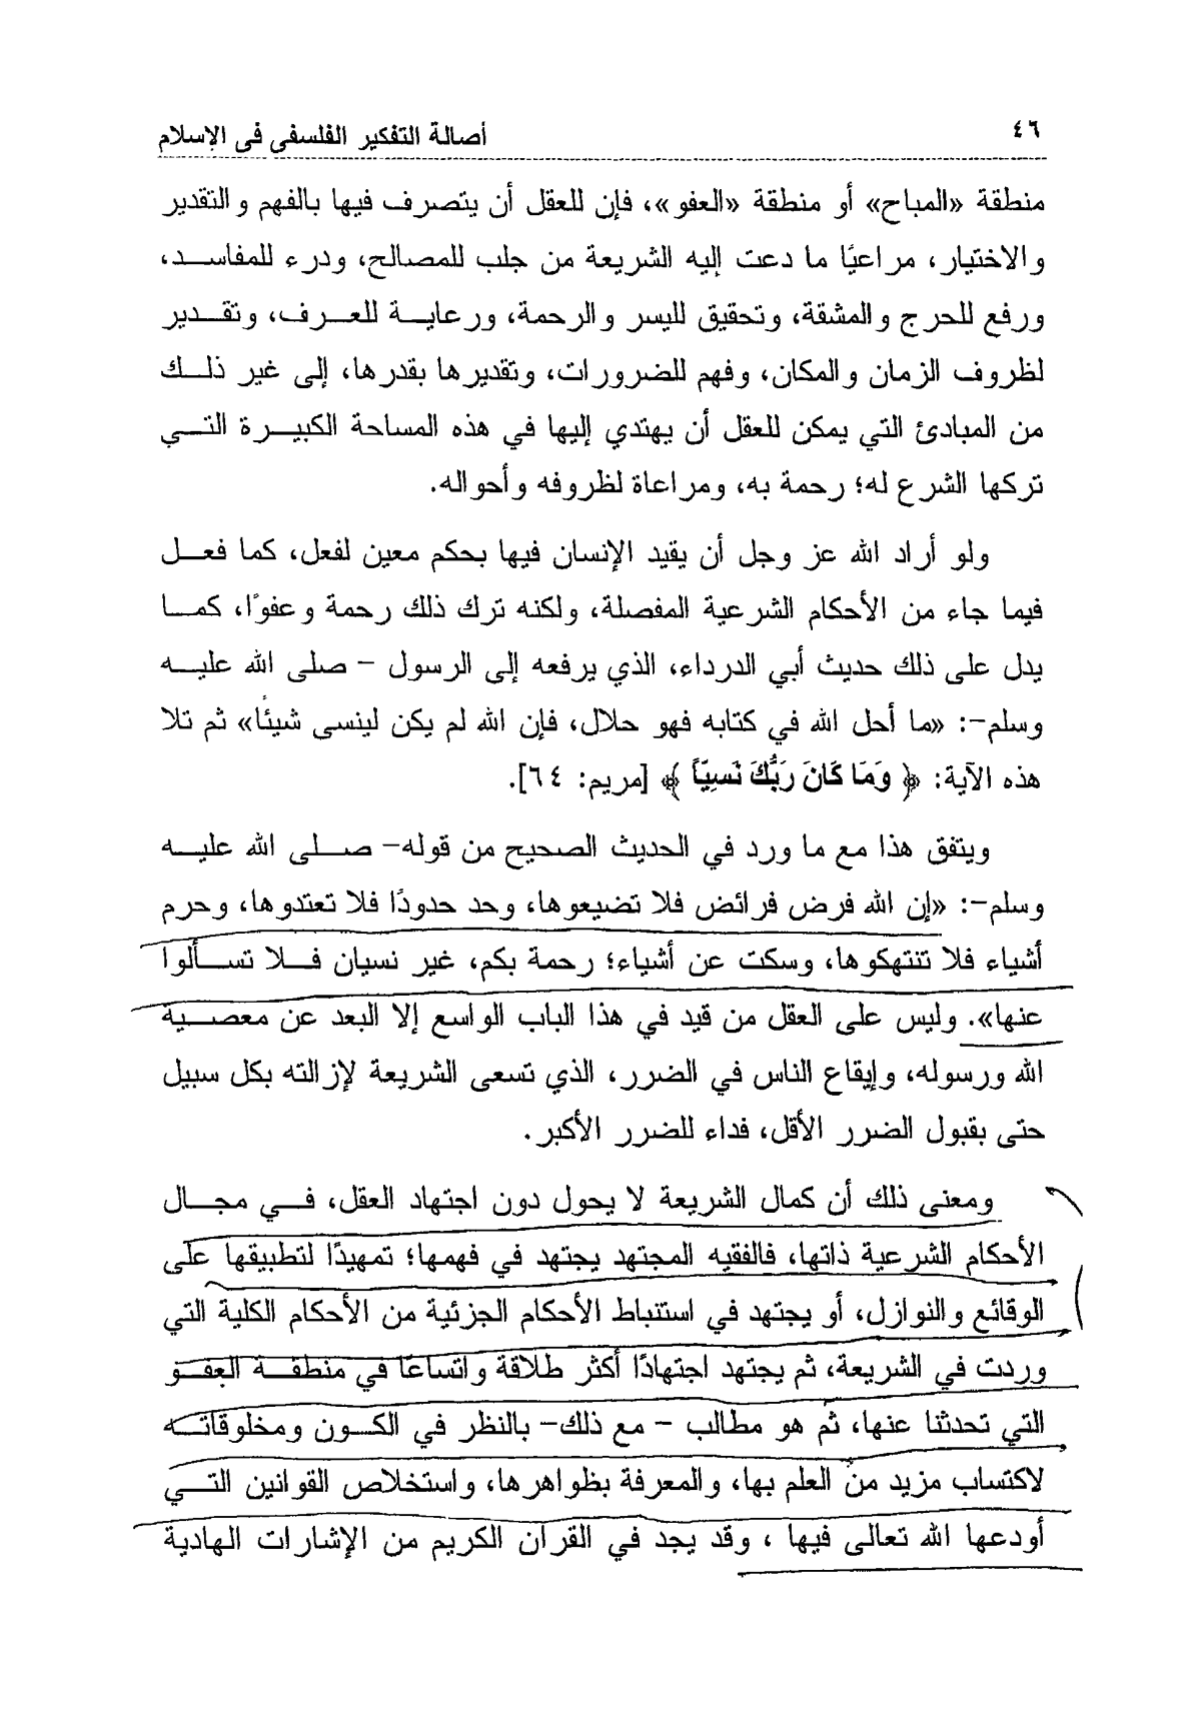 ٤٦
أصالة التفكير الفلسفى فى الإسلام
منطقة «المباح» أو منطقة «العفو»، فإن للعقل أن يتصرف فيها بالفهم والتقدير
والاختيار، مراعيًا ما دعت إليه الشريعة من جلب للمصالح، ودرء للمفاسد،
ورفع للحرج والمشقة، وتحقيق لليسر والرحمة، ورعاية للعرف، وتقدير
لظروف الزمان والمكان، وفهم للضرورات، وتقديرها بقدرها، إلى غير ذلك
من المبادئ التي يمكن للعقل أن يهتدي إليها في هذه المساحة الكبيرة التي
تركها الشرع له؛ رحمة به، ومراعاة لظروفه وأحواله.
ولو أراد الله عز وجل أن يقيد الإنسان فيها بحكم معين لفعل، كما فعل
فيما جاء من الأحكام الشرعية المفصلة، ولكنه ترك ذلك رحمة وعفوًا، كما
يدل على ذلك حديث أبي الدرداء، الذي يرفعه إلى الرسول – صلى الله عليه
وسلم–: «ما أحل الله في كتابه فهو حلال، فإن الله لم يكن لينسى شيئًا» ثم تلا
هذه الآية: ﴿ وَمَا كَانَ رَبُّكَ نَسِيّاً ﴾ [مريم: ٦٤].
ويتفق هذا مع ما ورد في الحديث الصحيح من قوله– صلى الله عليه
وسلم–: «إن الله فرض فرائض فلا تضيعوها، وحد حدودًا فلا تعتدوها، وحرم
أشياء فلا تنتهكوها، وسكت عن أشياء؛ رحمة بكم، غير نسيان فلا تسألوا
عنها». وليس على العقل من قيد في هذا الباب الواسع إلا البعد عن معصية
الله ورسوله، وإيقاع الناس في الضرر، الذي تسعى الشريعة لإزالته بكل سبيل
حتى بقبول الضرر الأقل، فداء للضرر الأكبر.
ومعنى ذلك أن كمال الشريعة لا يحول دون اجتهاد العقل، في مجال
الأحكام الشرعية ذاتها، فالفقيه المجتهد يجتهد في فهمها؛ تمهيدًا لتطبيقها على
الوقائع والنوازل، أو يجتهد في استنباط الأحكام الجزئية من الأحكام الكلية التي
وردت في الشريعة، ثم يجتهد اجتهادًا أكثر طلاقة واتساعًا في منطقة العفو
التي تحدثنا عنها، ثم هو مطالب – مع ذلك– بالنظر في الكون ومخلوقاته
لاكتساب مزيد من العلم بها، والمعرفة بظواهرها، واستخلاص القوانين التي
أودعها الله تعالى فيها ، وقد يجد في القرآن الكريم من الإشارات الهادية